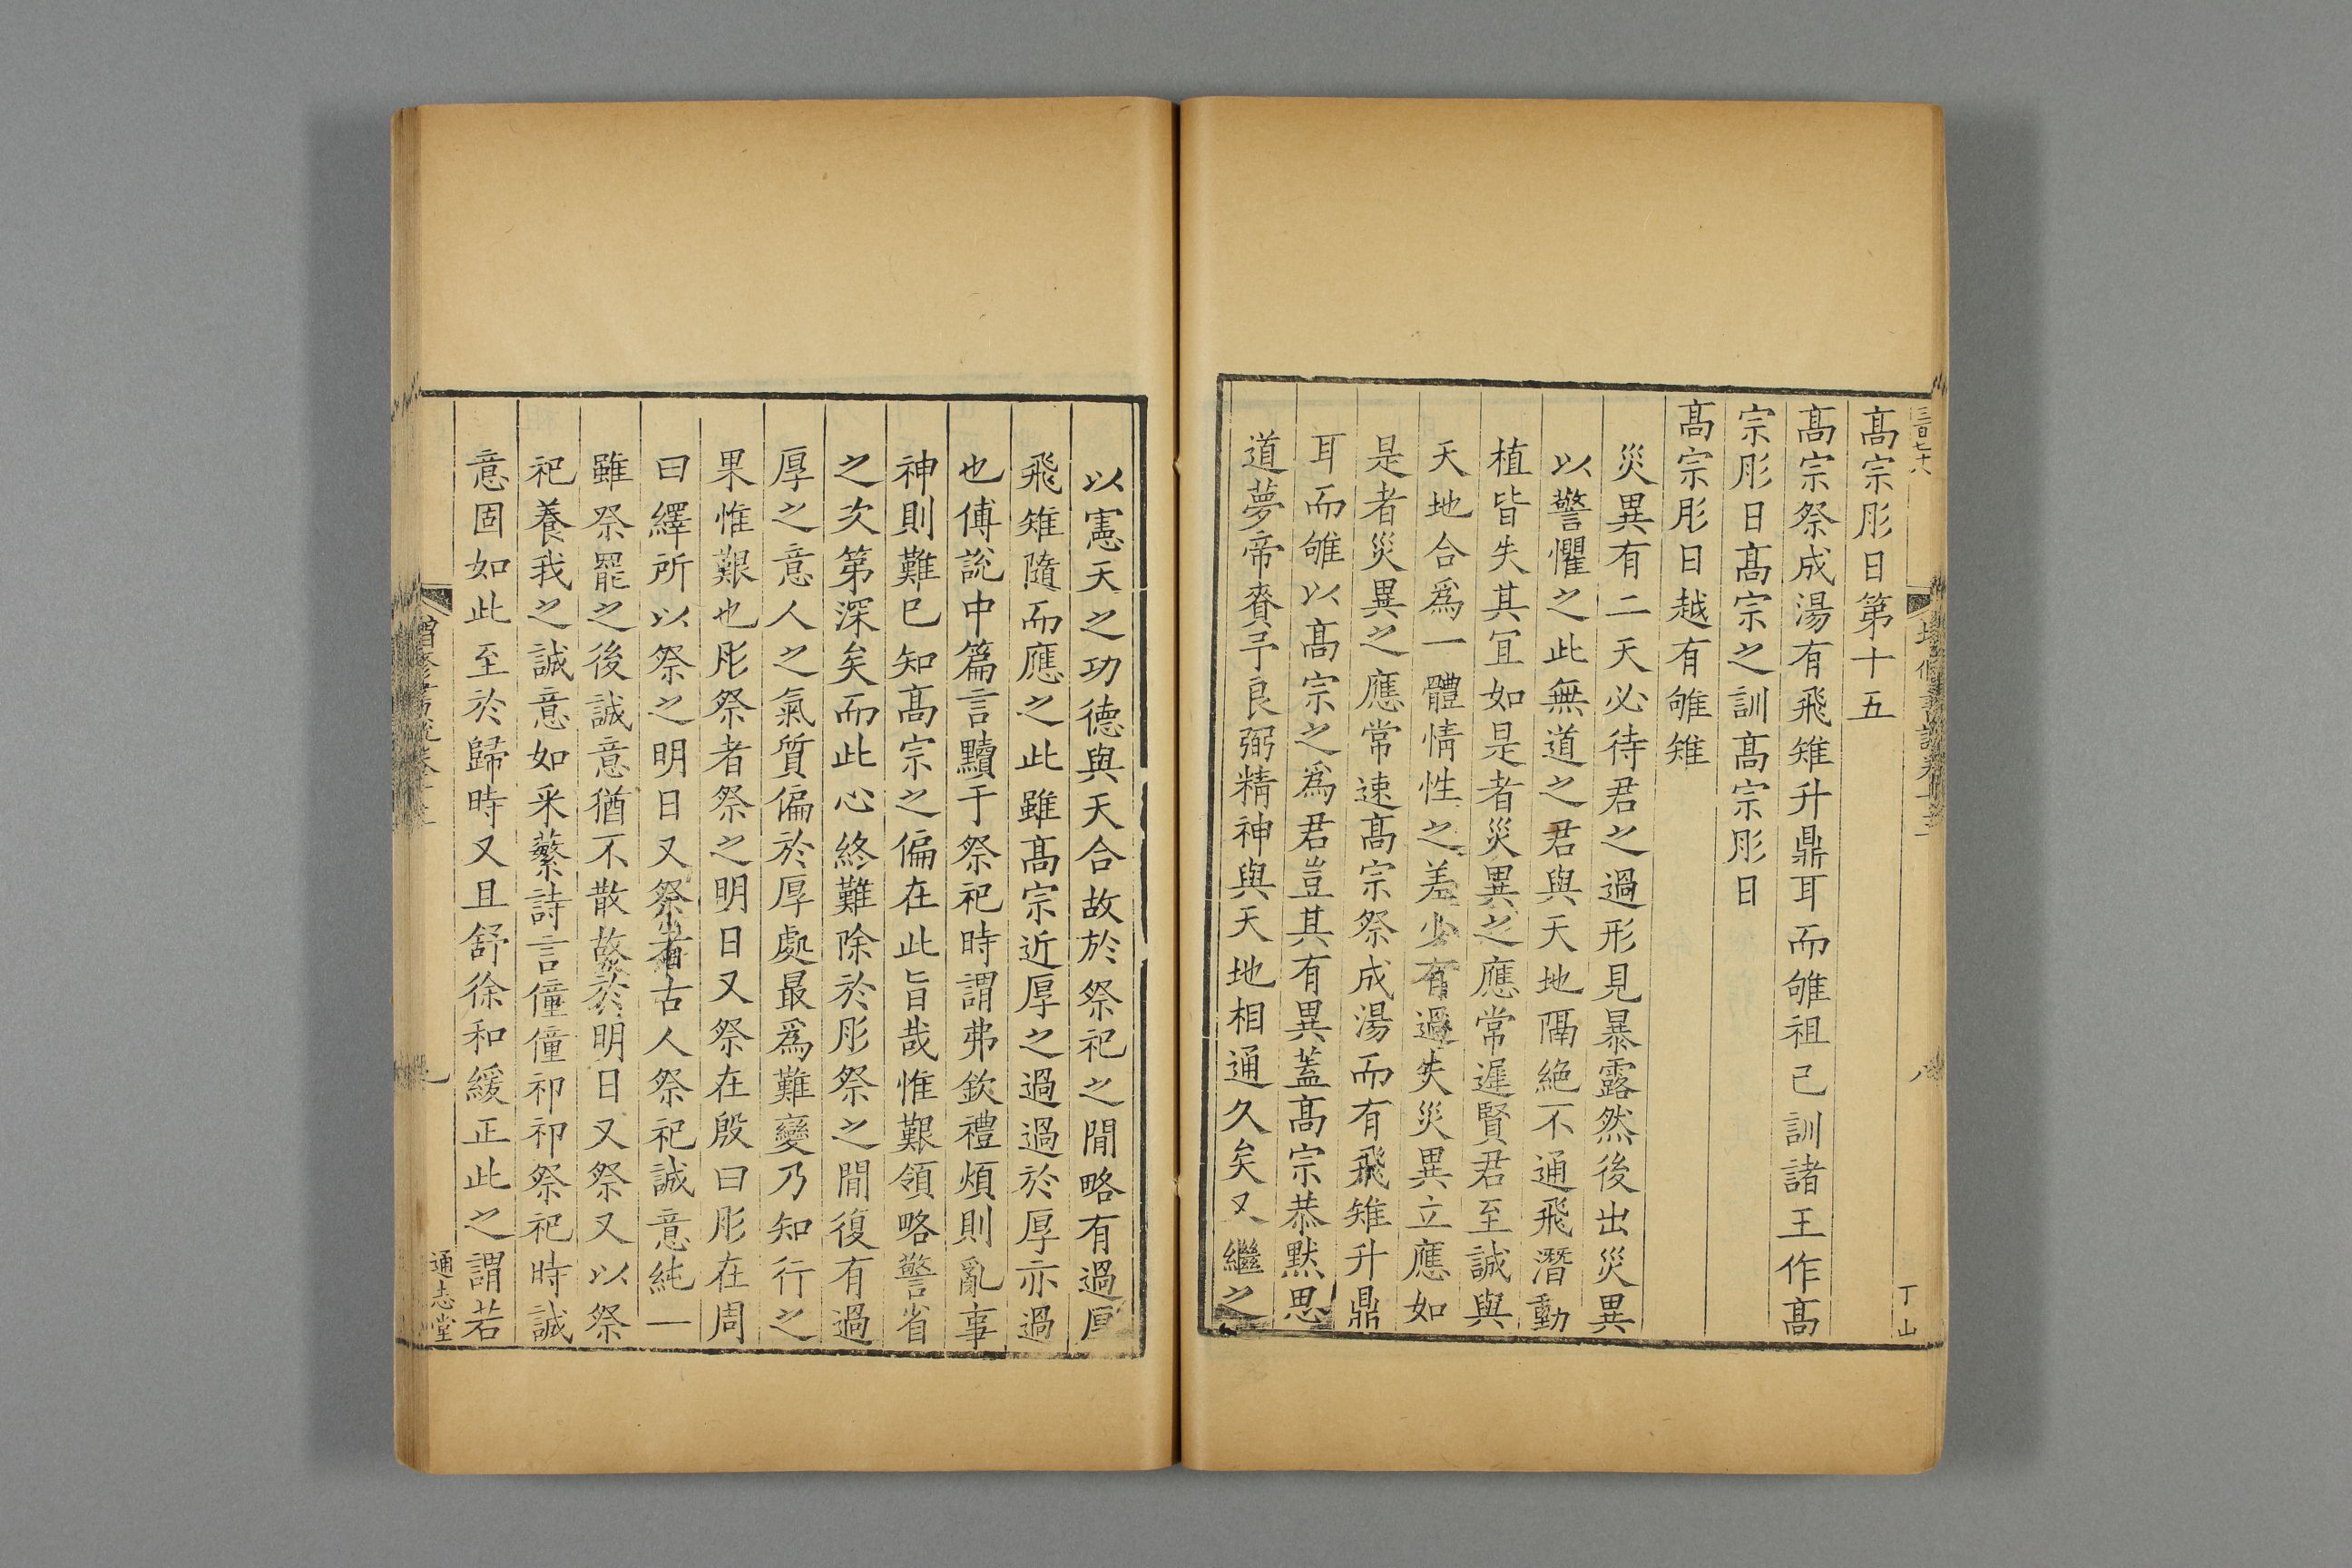 髙宗肜日第十五
髙宗祭成湯有飛雉升鼎耳而雊祖己訓諸王作髙
宗肜日髙宗之訓髙宗肜日
髙宗肜日越有雊雉
災異有二天必待君之過形見暴露然後出災異
以警懼之此無道之君與天地隔絶不通飛潛動
植皆失其宜如是者災異之應常遲賢君至誠與
天地合爲一體情性之差少有過失災異立應如
是者災異之應常速髙宗祭成湯而有飛雉升鼎
耳而雊以髙宗之爲君豈其有異蓋髙宗恭黙思
道夢帝賚予良弼精神與天地相通久矣又繼之
以憲天之功德與天合故於祭祀之閒略有過厚
飛雉隨而應之此雖髙宗近厚之過過於厚亦過
也傅說中篇言黷于祭祀時謂弗欽禮煩則亂事
神則難已知髙宗之偏在此旨哉惟艱領略警省
之次第深矣而此心終難除於肜祭之閒復有過
厚之意人之氣質偏於厚處最爲難變乃知行之
果惟艱也肜祭者祭之明日又祭在殷曰肜在周
曰繹所以祭之明日又祭者古人祭祀誠意純一
雖祭罷之後誠意猶不散故於明日又祭又以祭
祀養我之誠意如采蘩詩言僮僮祁祁祭祀時誠
意固如此至於歸時又且舒徐和緩正此之謂若
通志堂